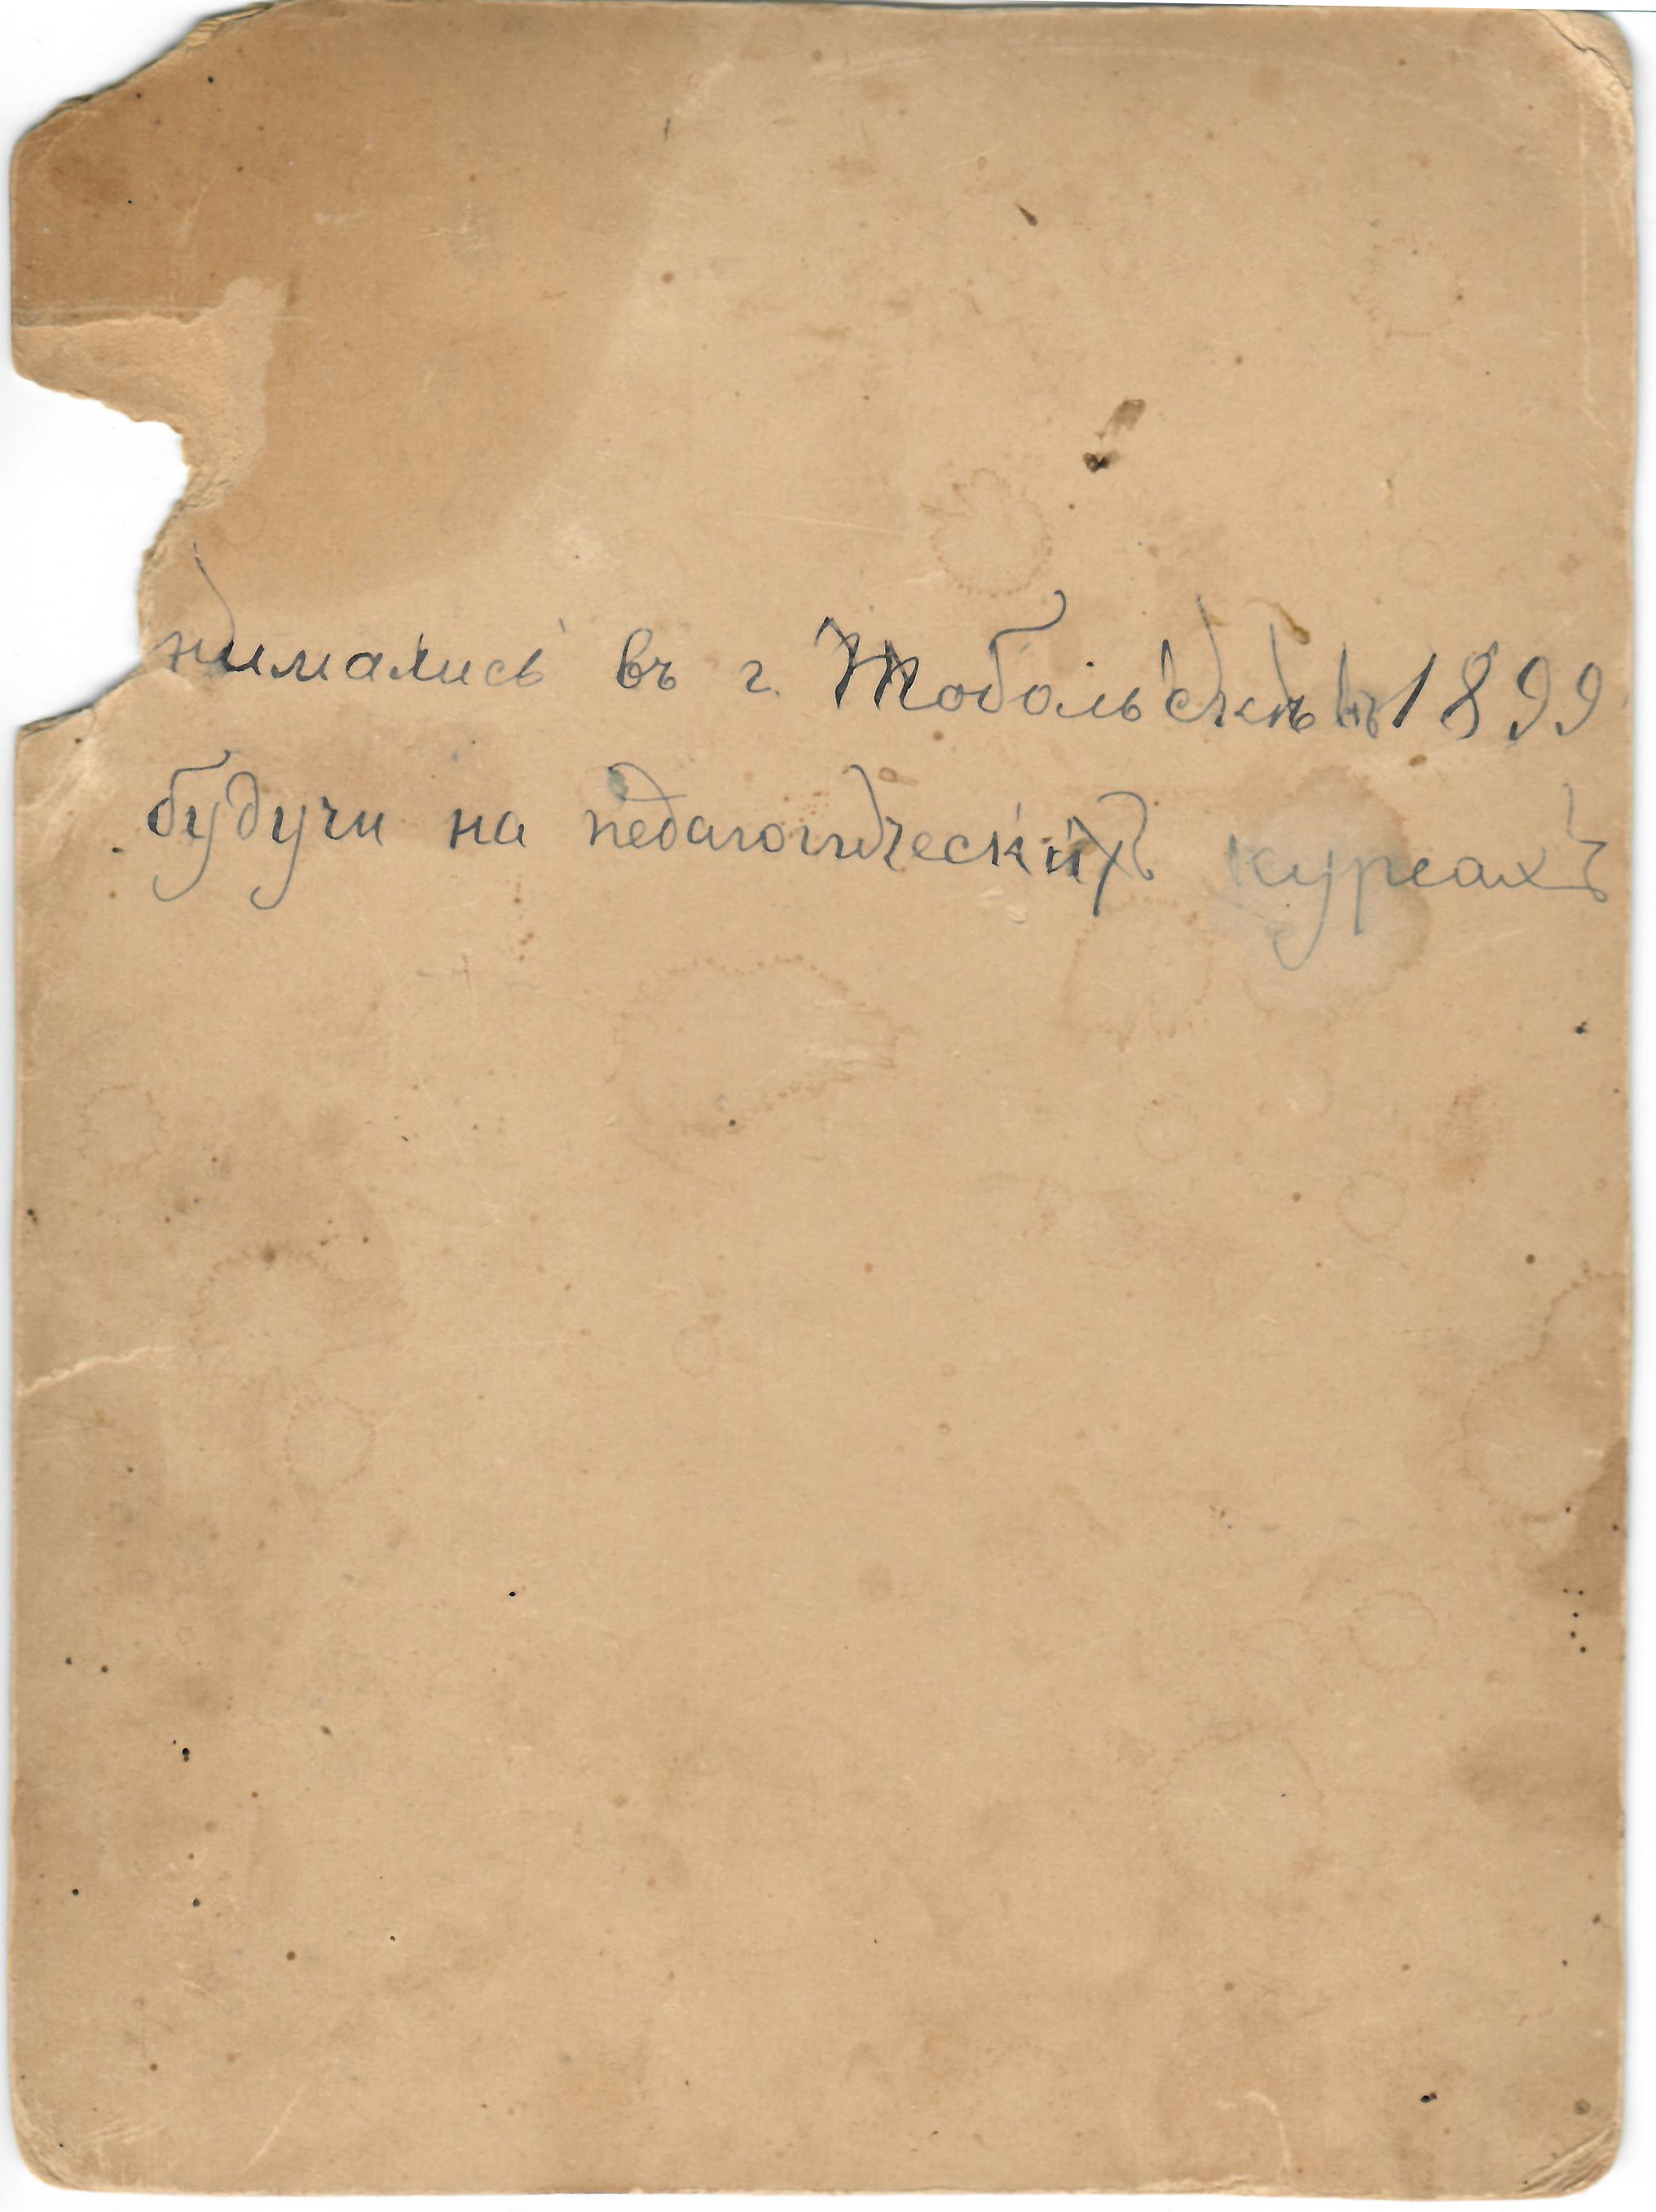 нимались въ г. Тобольскѣ въ 1899
будучи на педагогическихъ курсахъ